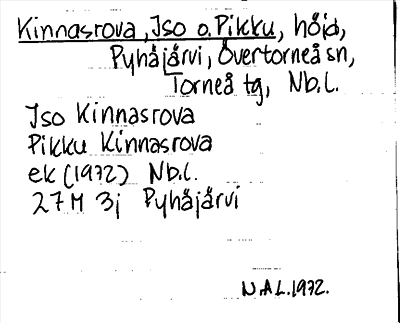 Kinnasrova, Iso o. Pikku, höjd,
Pyhäjärvi, Övertorneå sn,
Torneå tg, Nb.l.
Iso Kinnasrova
Pikku Kinnasrova
ek (1972) Nb.l.
27M 3j Pyhäjärvi
N.A.L. 1972.